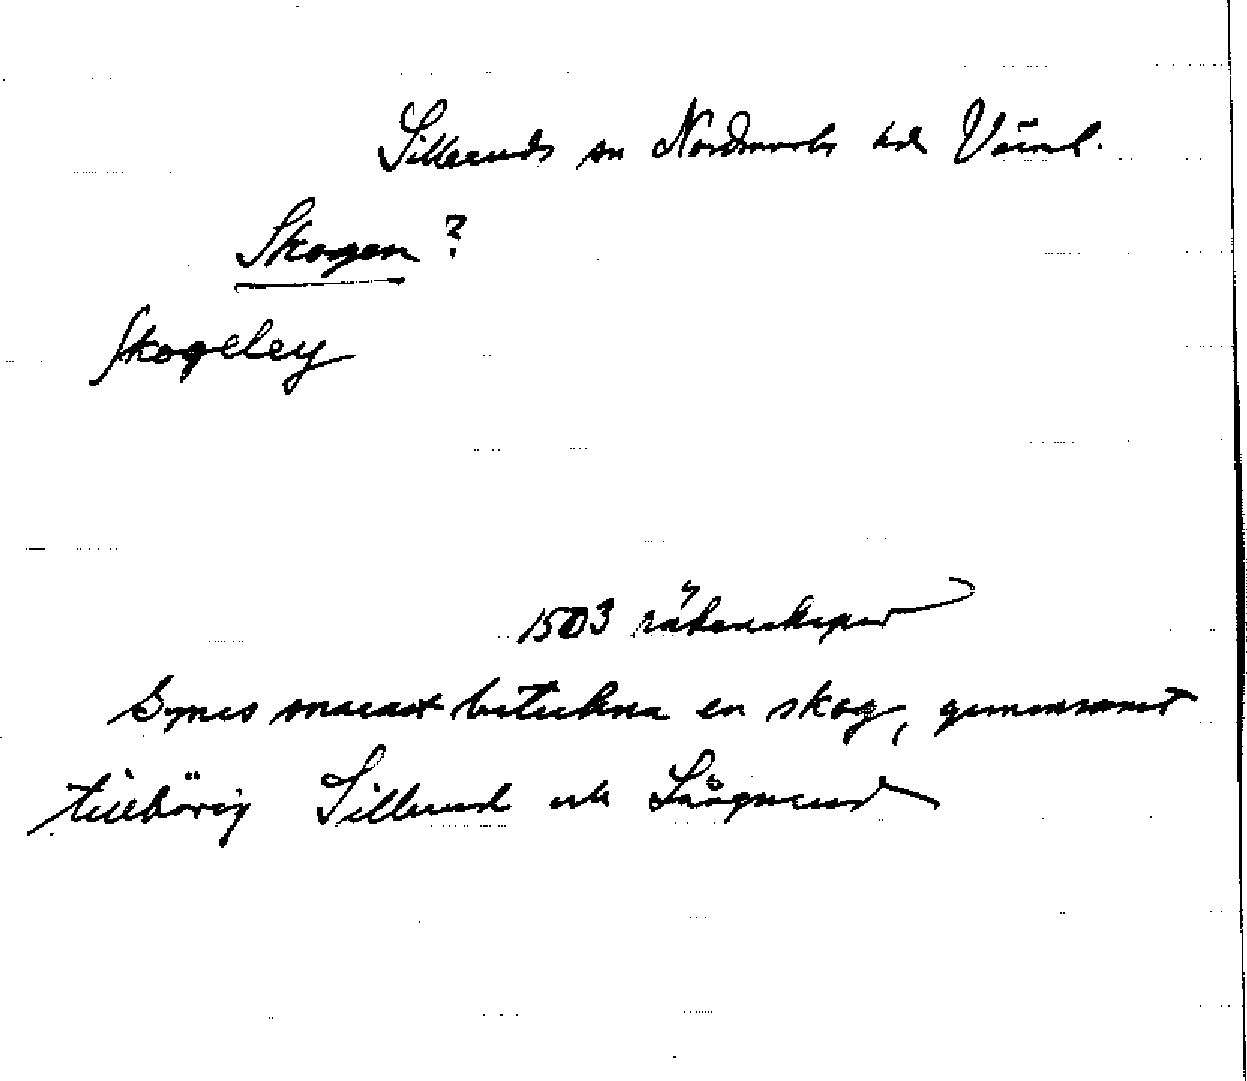 Silleruds sn Nordmarks hd Värml.
Skogen ?
Skogeley
1503 räkenskaper
Synes snarast beteckna en skog, gemensamt
tillhörig Sillerud och